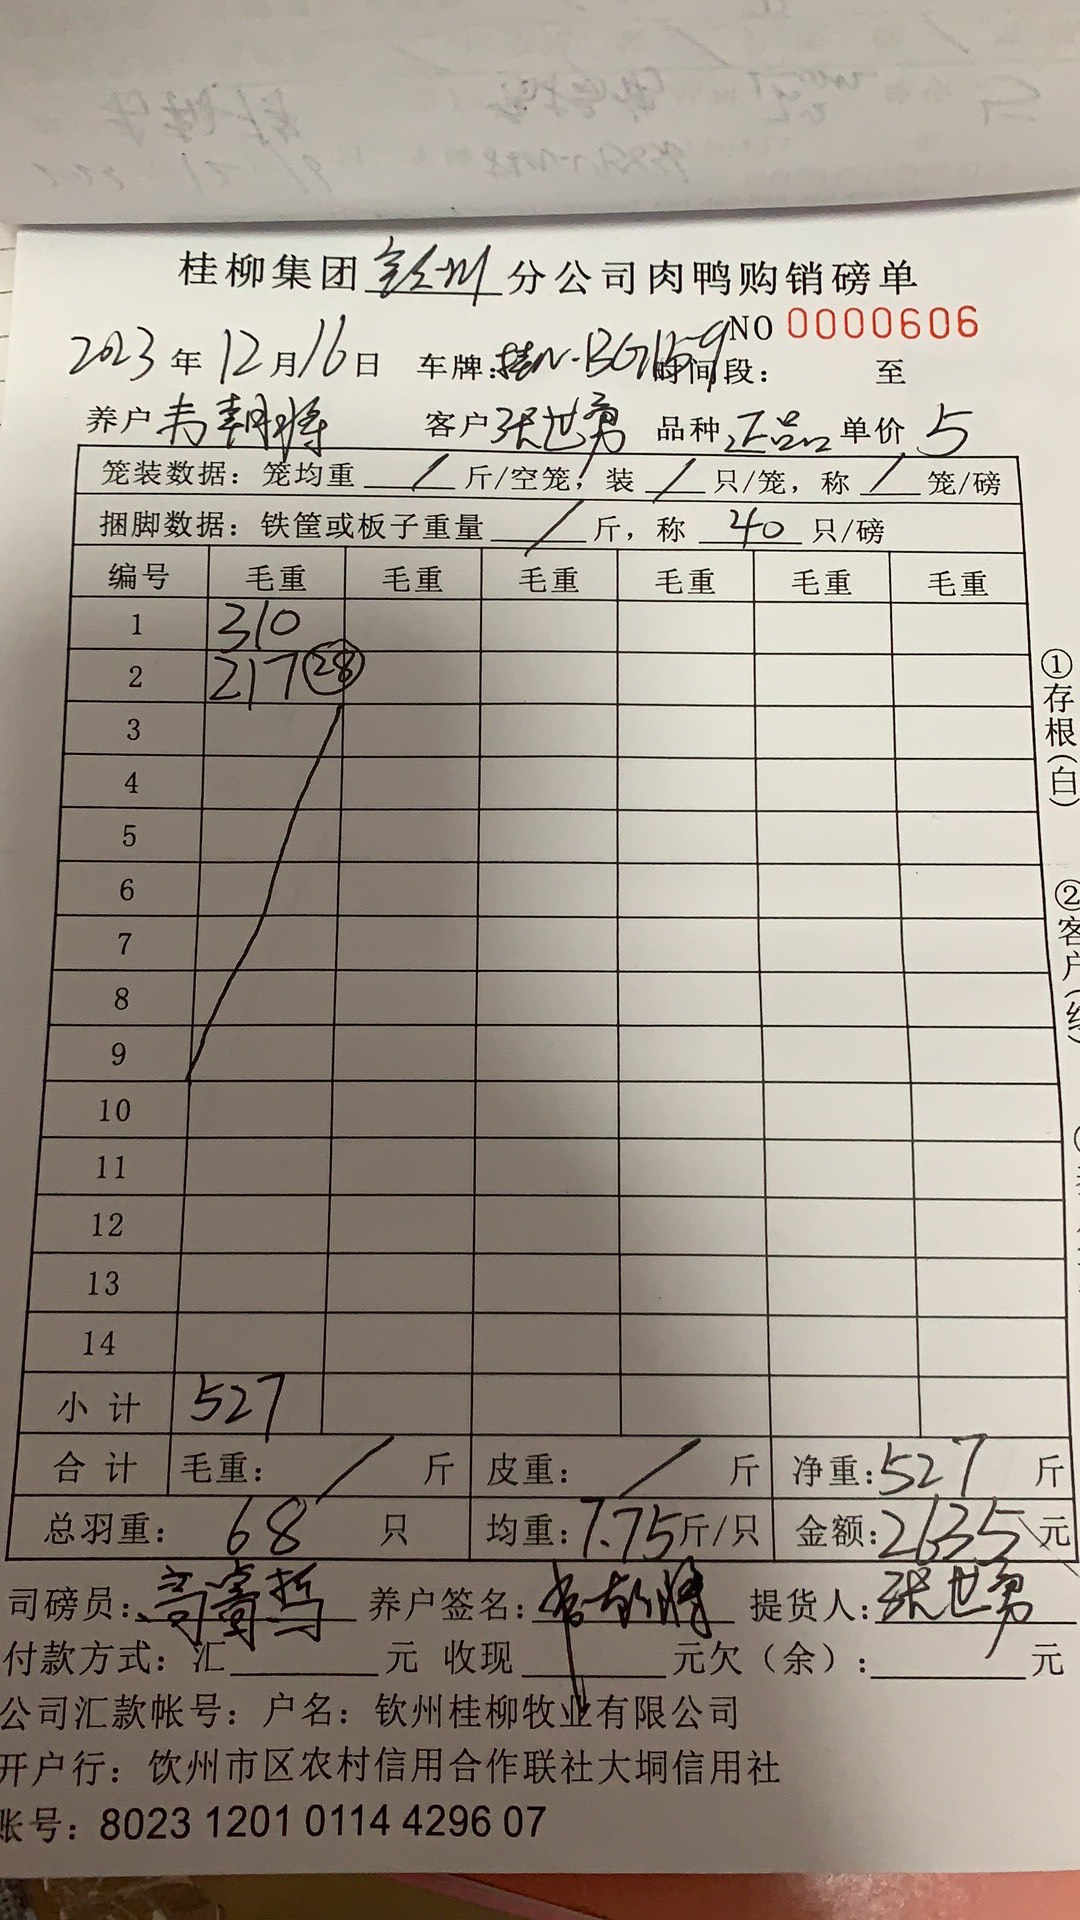 桂柳集团钦州分公司肉鸭购销磅单
NO 0000606
2023年12月16日 车牌:桂N·BG159 时间段: 至
养户 韦朝将 客户 张世勇 品种 正品 单价 5
笼装数据: 笼均重 / 斤/空笼, 装 / 只/笼, 称 / 笼/磅
捆脚数据: 铁筐或板子重量 / 斤, 称 40 只/磅
编号 毛重 毛重 毛重 毛重 毛重 毛重
1 310
2 217 28
3
4
5
6
7
8
9
10
11
12
13
14
小计 527
合计 毛重: / 斤 皮重: / 斤 净重:527 斤
总羽重: 68 只 均重:7.75斤/只 金额:2635元
司磅员: 养户签名: 提货人:张世勇
付款方式: 汇 元 收现 元欠(余): 元
公司汇款帐号: 户名: 钦州桂柳牧业有限公司
开户行: 钦州市区农村信用合作联社大垌信用社
账号: 8023 1201 0114 4296 07
①存根(白)
②客户(红)